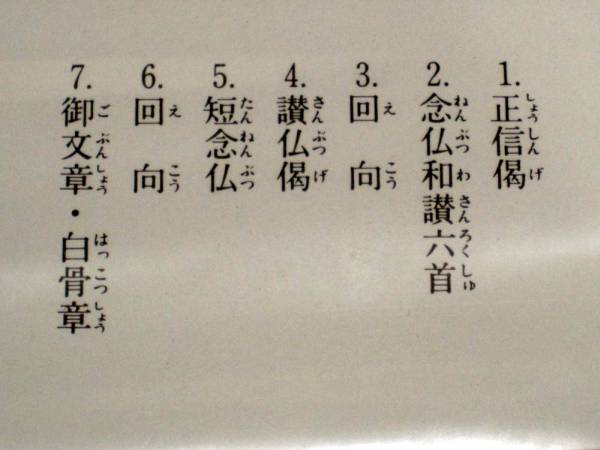 1. 正信偈
しょうしんげ
2. 念仏和讃六首
ねんぶつわさんろくしゅ
3. 回向
えこう
4. 讃仏偈
さんぶつげ
5. 短念仏
たんねんぶつ
6. 回向
えこう
7. 御文章・白骨章
ごぶんしょうはっこつしょう